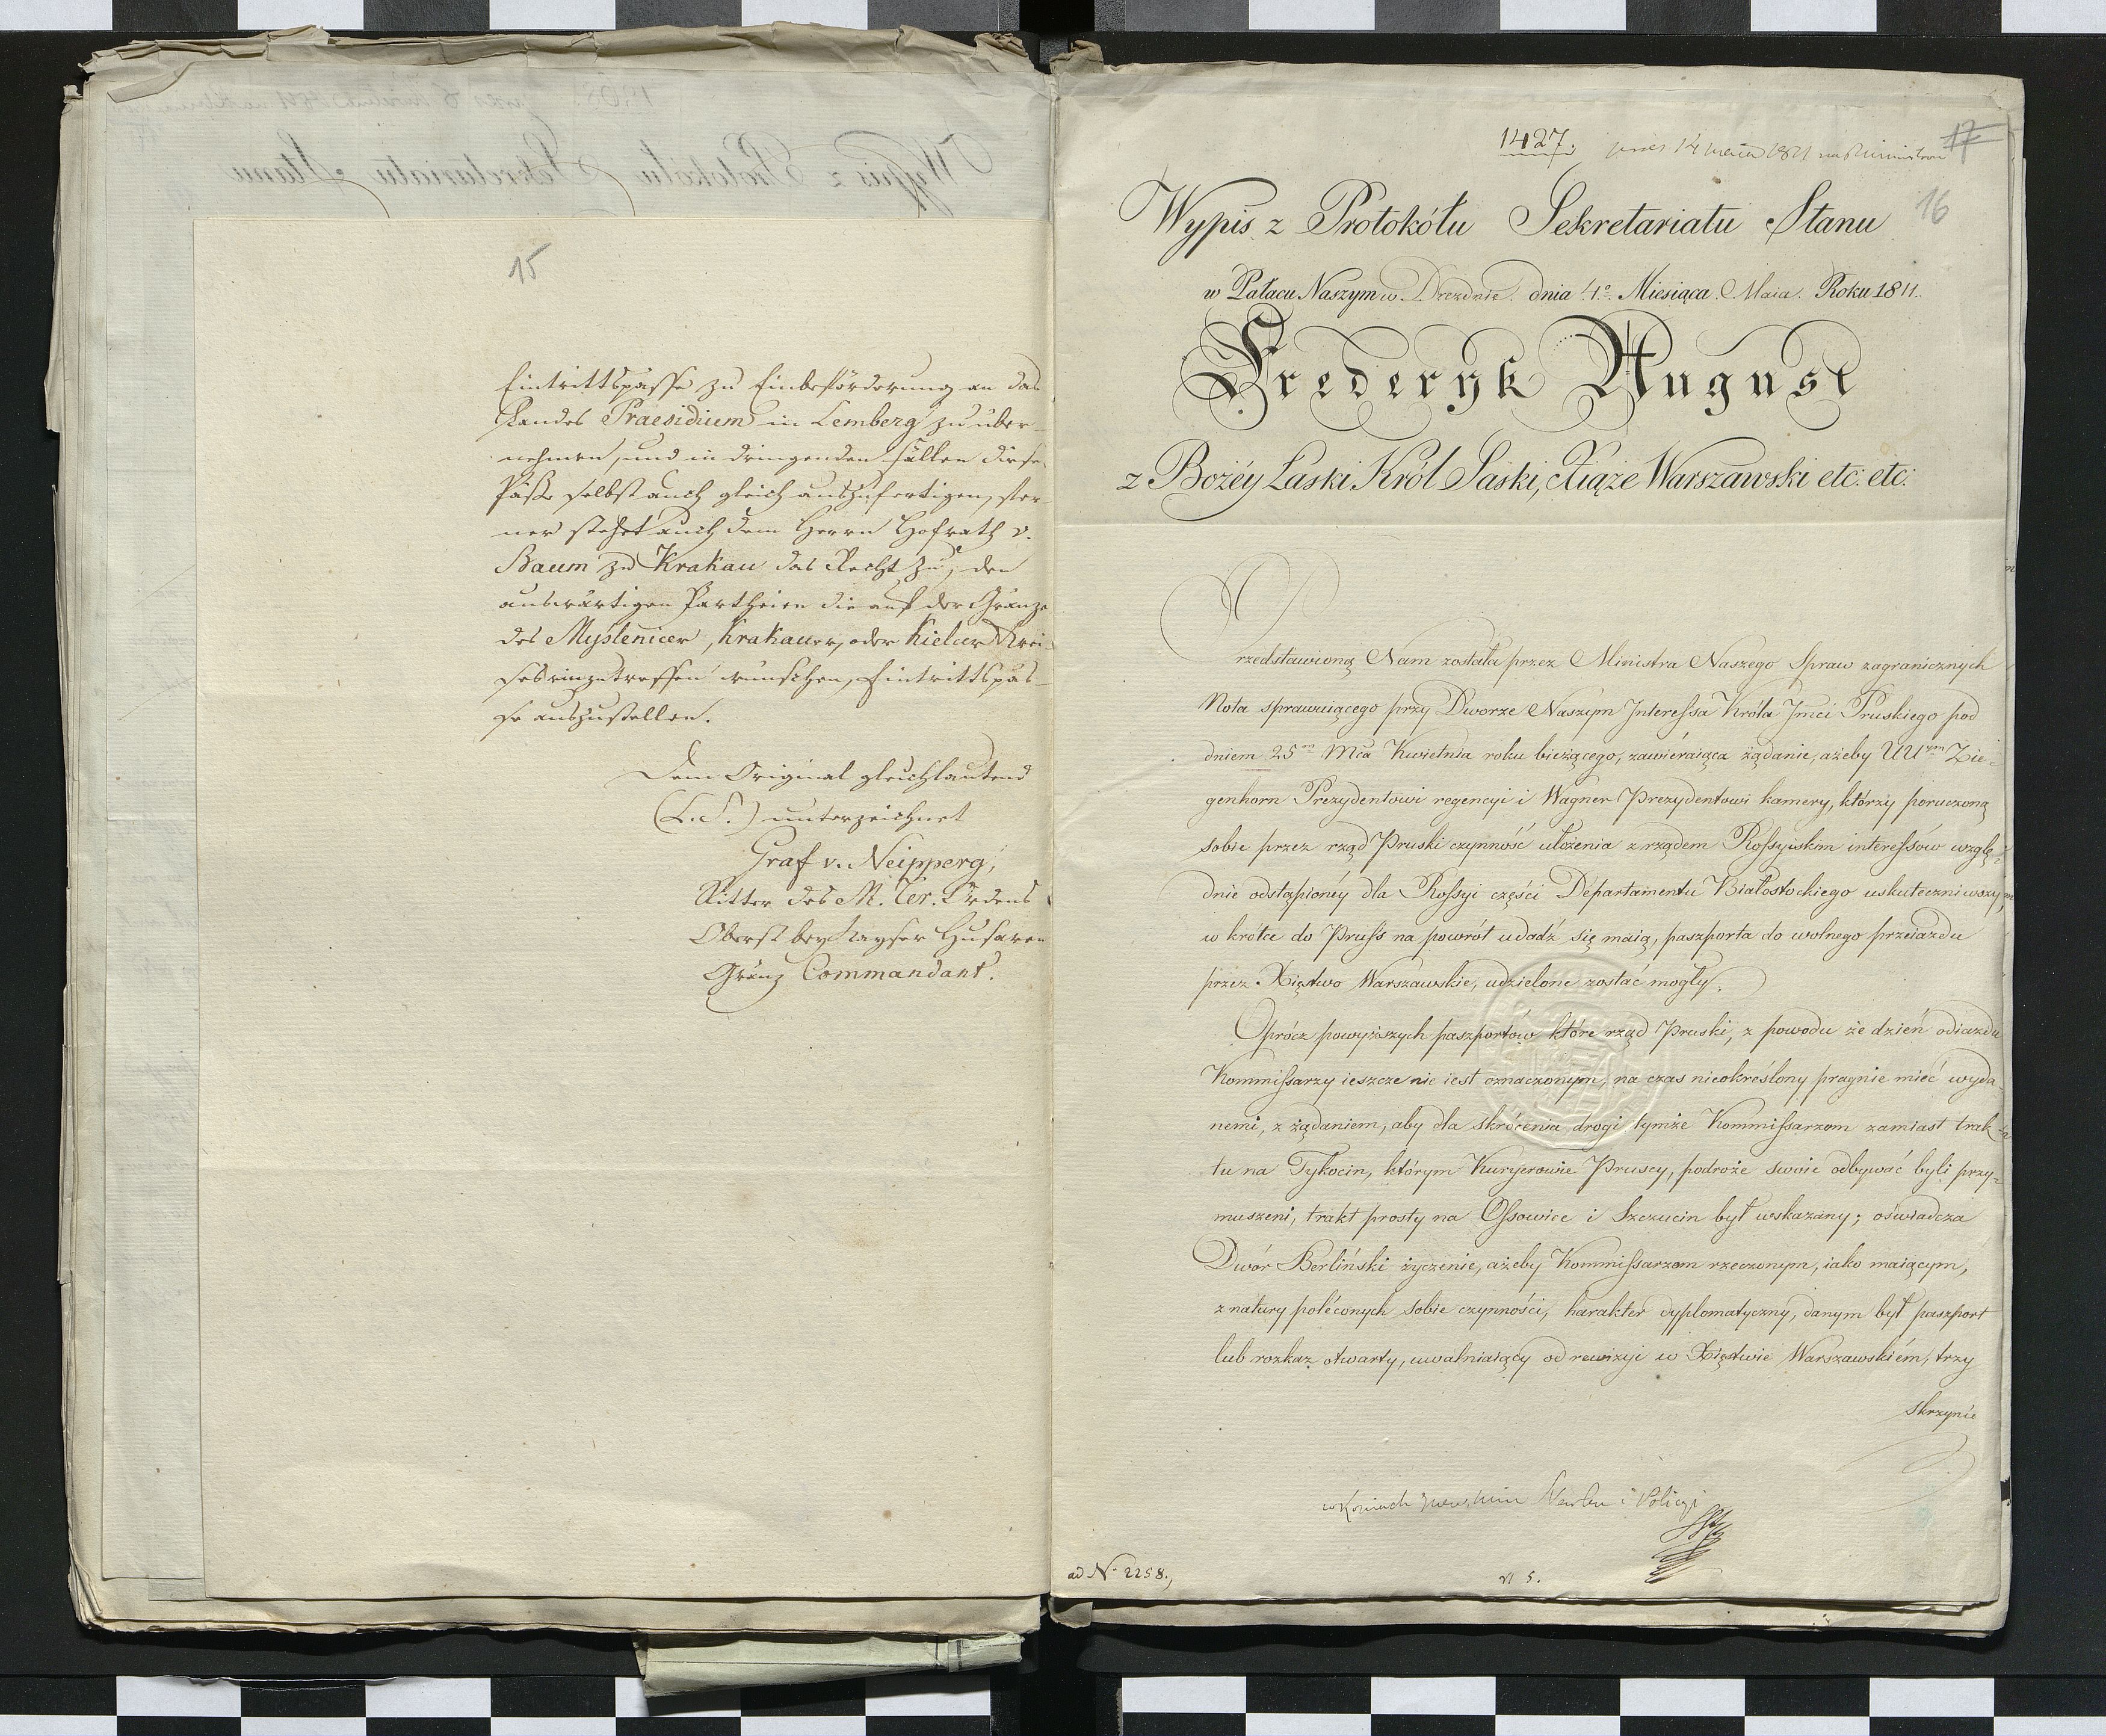 15
Eintrittspässe zu Einbeförderung an das
Landes Praesidium in Lemberg zu über-
nehmen, und in dringenden Fällen diese
Päße selbst auch gleich auszufertigen, fer-
ner stehet auch dem Herrn Hofrath v.
Baum zu Krakau das Recht zu, den
auswärtigen Partheien die auf der Gränze
des Myslenicer, Krakauer, oder Kielcer Krei-
ses einzutreffen wünschen, Eintrittspäs-
se auszustellen.
Dem Original gleichlautend
(L.S.) unterzeichnet
Graf v. Neipperg,
Ritter des M. Ter. Ordens
Oberst bey Kayser Husaren
Gränz Commandant.
1427. 1811
17
16
Wypis z Protokółu Sekretariatu Stanu
w Pałacu Naszym w Dreznie dnia 1o. Miesiąca Maia Roku 1811.
Fryderyk August
z Bożéy Łaski Król Saski, Xiąże Warszawski etc: etc:
Przedstawioną Nam została przez Ministra Naszego Spraw zagranicznych
Nota sprawuiącego przy Dworze Naszym Interessa Króla Jmci Pruskiego pod
dniem 25m Mca Kwietnia roku bieżącego, zawieraiąca żądanie, ażeby UUym Zie-
genhorn Prezydentowi regencyi i Wagner Prezydentowi kamery, którzy poruczoną
sobie przez rząd Pruski czynność ułożenia z rządem Rossyiskim interessów wzglę-
dnie odstąpionéy dla Rossyi części Départamentu Białostockiego uskuteczniwszy,
w krótce do Pruss na powrót udadź się maią, paszporta do wolnego przeiazdu
przez Xięstwo Warszawskie, udzielone zostać mogły.
Oprócz powyższych paszportów które rząd Pruski, z powodu że dzień odiazdu
Kommissarzy ieszcze nie iest oznaczonym, na czas nieokreślony pragnie mieć wyda-
nemi, z żądaniem, aby dla skrócenia drogi tymże Kommissarzom zamiast trak-
tu na Tykocin, którym Kuryerowie Pruscy, podroże swoie odbywać byli przy-
muszeni, trakt prosty na Ossowice i Szczucin był wskazany; oświadcza
Dwór Berliński życzenie, ażeby Kommissarzom rzeczonym, iako maiącym,
z natury poléconych sobie czynności, harakter dyplomatyczny, danym był paszport
lub rozkaz otwarty, uwalniaiący od rewizyi w Xięstwie Warszawskiém, trzy
skrzynie
i Policyi
ad No. 2258.,